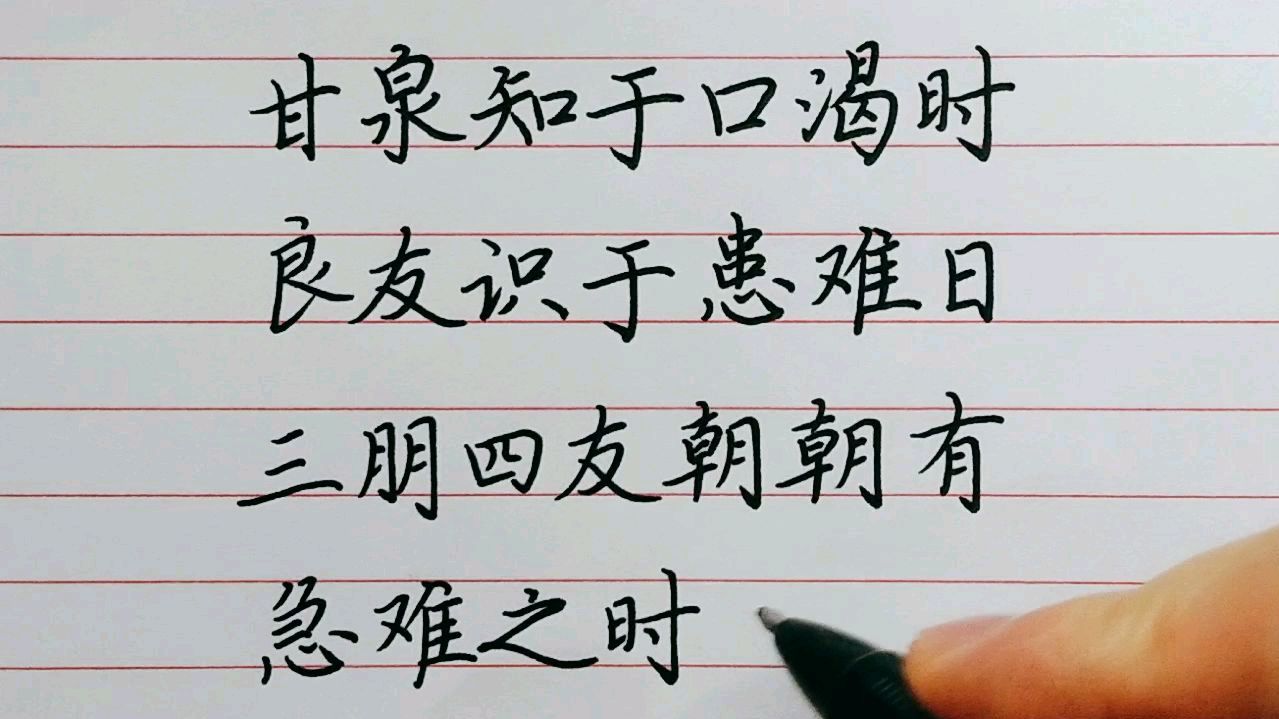 甘泉知于口渴时
良友识于患难日
三朋四友朝朝有
急难之时